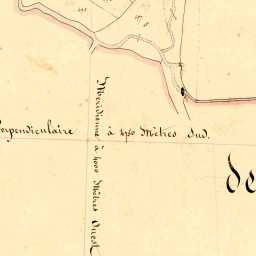 Perpendiculaire à 4750 Mètres Sud.
Méridienne à 4000 Mètres Ouest
de